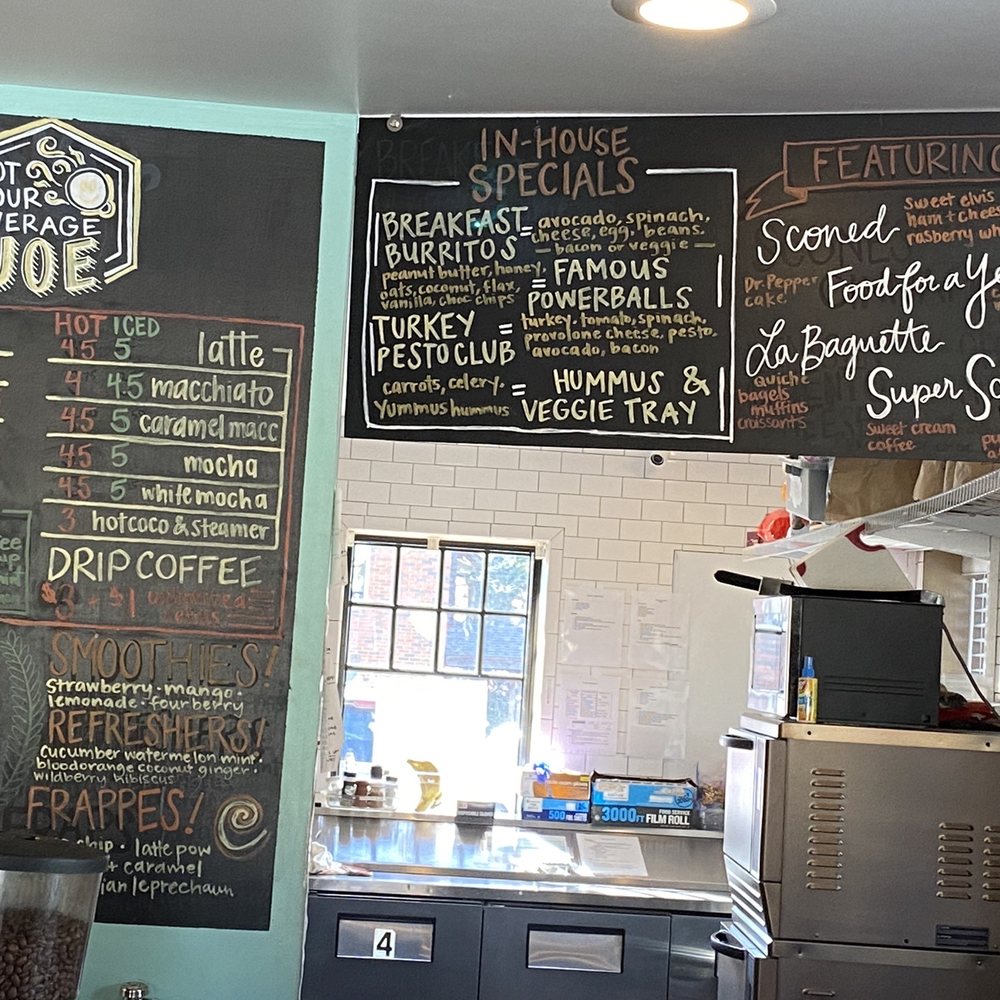 OT
OUR
VERAGE
JOE
HOT ICED
4.5 5 latte
4 4.5 macchiato
4.5 5 caramel macc
4.5 5 mocha
4.5 5 white mocha
3 hot coco & steamer
DRIP COFFEE
$3 + $1
SMOOTHIES!
Strawberry · mango ·
lemonade · four berry
REFRESHERS!
Cucumber watermelon mint ·
blood orange coconut ginger ·
wildberry hibiscus
FRAPPES!
chip · latte pow
caramel
ian leprechaun
IN-HOUSE
SPECIALS
BREAKFAST
BURRITOS
= avocado, spinach,
cheese, egg, beans.
— bacon or veggie —
peanut butter, honey,
oats, coconut, flax,
vanilla, choc chips
= FAMOUS
POWERBALLS
TURKEY
PESTO CLUB
= turkey, tomato, spinach,
provolone cheese, pesto,
avocado, bacon
carrots, celery,
Yummus hummus
= HUMMUS &
VEGGIE TRAY
FEATURING
Sconed
Sweet elvis
ham + chees
rasberry wh
Dr. Pepper
cake
Food for a Ye
La Baguette
quiche
bagels
muffins
croissants
Super Sc
sweet cream
coffee
4
500
3000FT
FOOD SERVICE
FILM ROLL